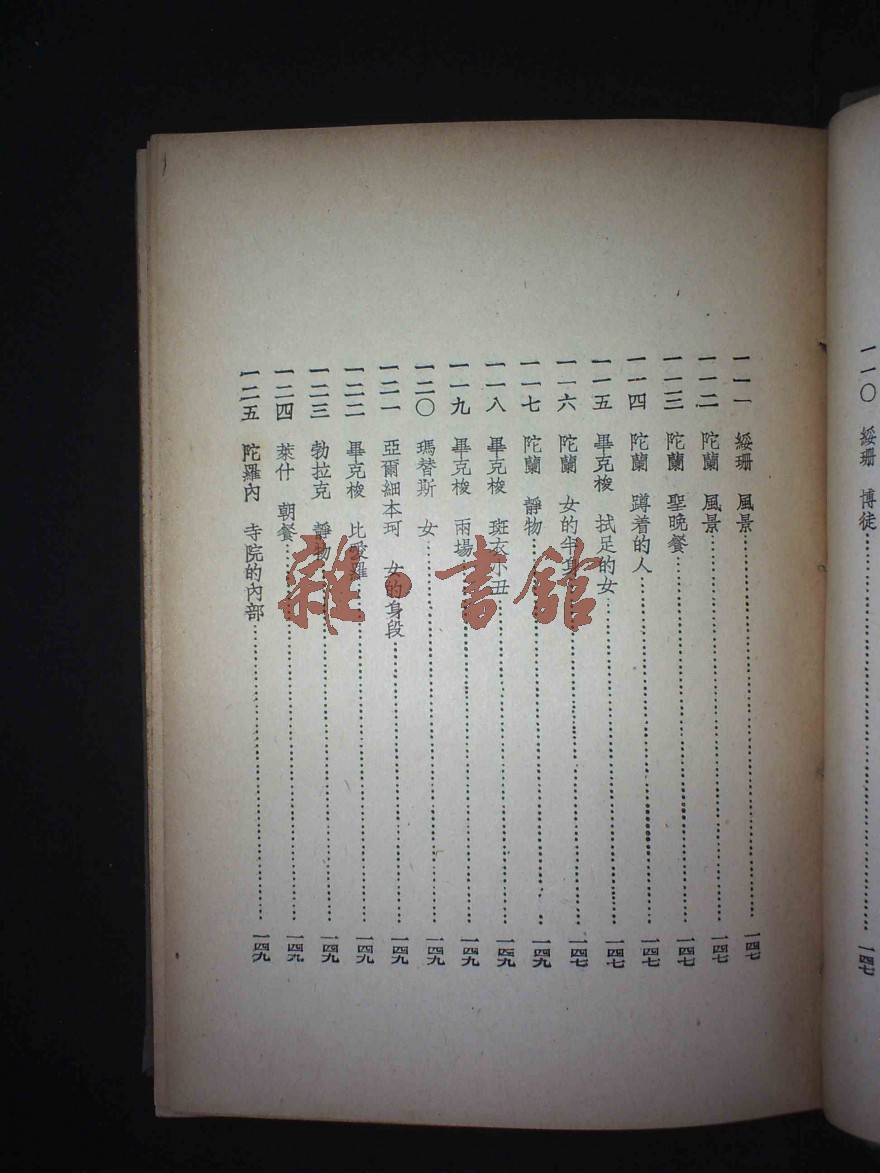 一一〇 綏珊 博徒……………一四七
一一一 綏珊 風景……………一四七
一一二 陀蘭 風景……………一四七
一一三 陀蘭 聖晚餐……………一四七
一一四 陀蘭 蹲着的人……………一四七
一一五 畢克梭 拭足的女……………一四七
一一六 陀蘭 女的半身……………一四七
一一七 陀蘭 靜物……………一四九
一一八 畢克梭 斑衣小丑……………一四九
一一九 畢克梭 兩場……………一四九
一二〇 瑪替斯 女……………一四九
一二一 亞爾細本珂 女的身段……………一四九
一二二 畢克梭 比愛羅……………一四九
一二三 勃拉克 靜物……………一四九
一二四 萊什 朝餐……………一四九
一二五 陀羅內 寺院的內部……………一四九
雜·書館